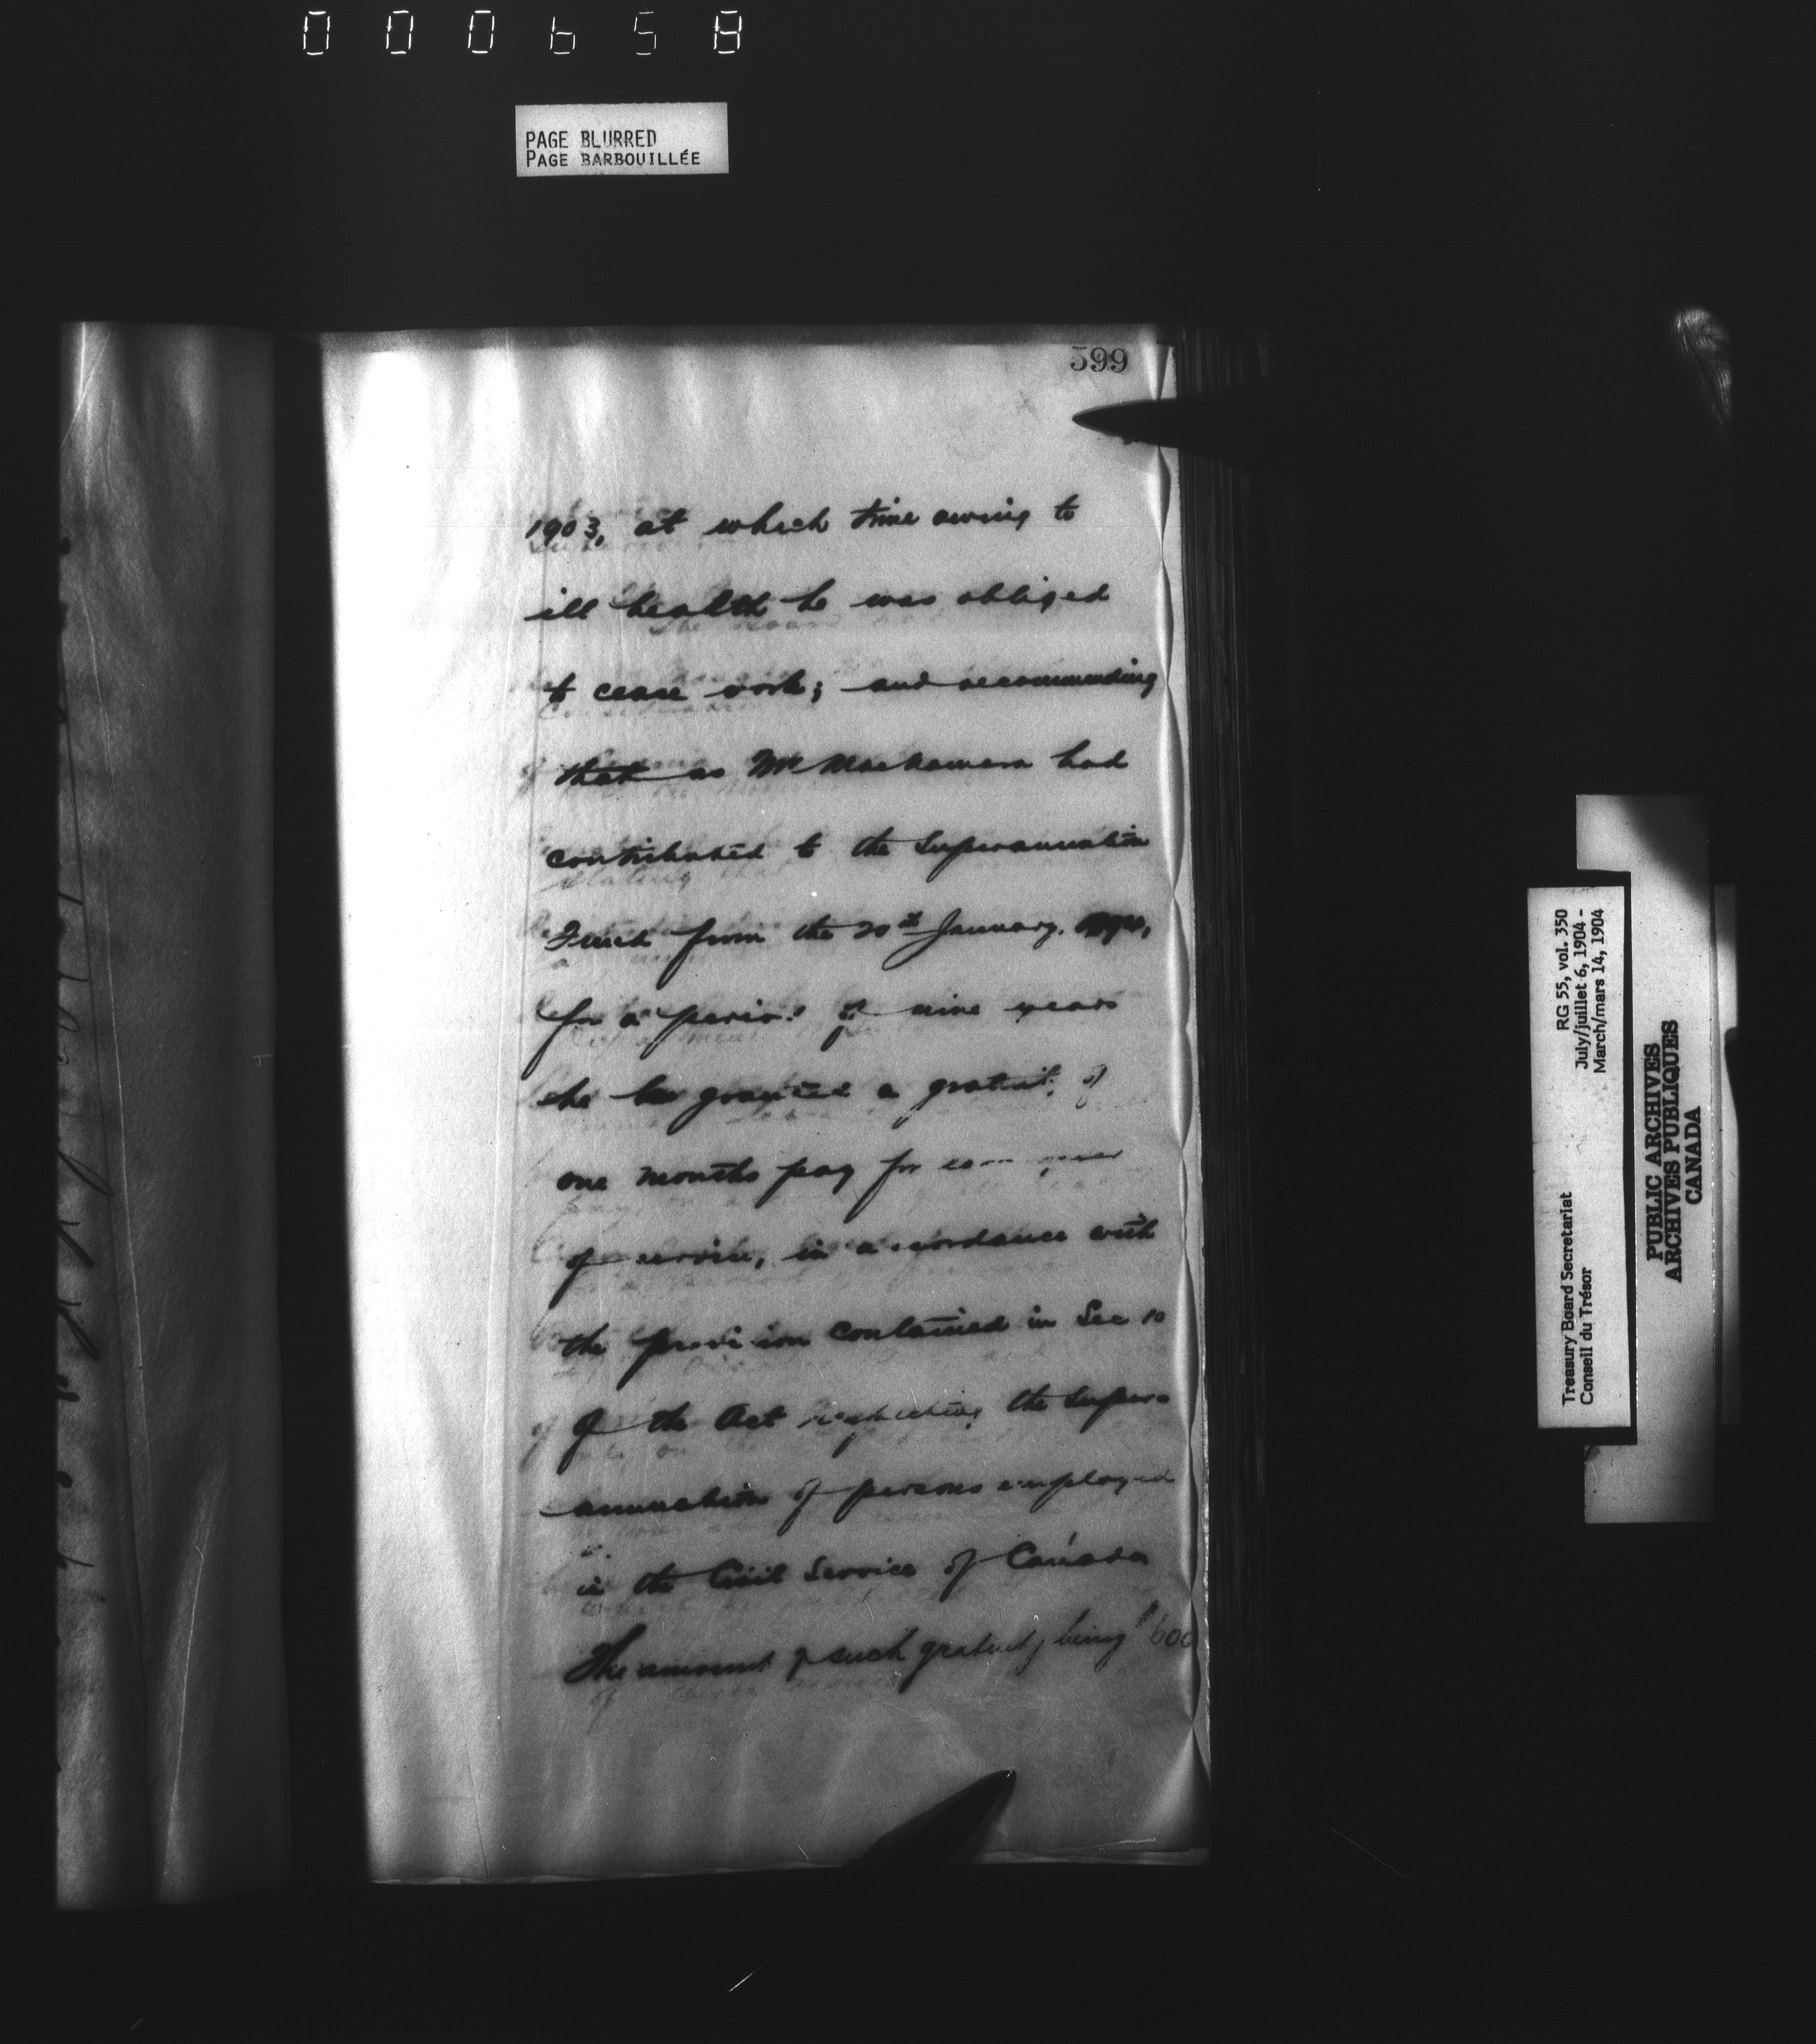 000658
PAGE BLURRED
PAGE BARBOUILLÉE
599
1903, at which time owing to
ill health he was obliged
to cease work; and recommending
that as Mr MacNamara had
contributed to the Superannuation
Fund from the 20th January,
for a period of nine years
he be granted a gratuity of
one months pay for each year
of service, in accordance with
the provision contained in Sec 10
of the Act respecting the Super-
annuation of persons employed
in the Civil Service of Canada
The amount of such gratuity being $600
RG 55, vol. 350
July/juillet 6, 1904 -
March/mars 14, 1904
Treasury Board Secretariat
Conseil du Trésor
PUBLIC ARCHIVES
ARCHIVES PUBLIQUES
CANADA